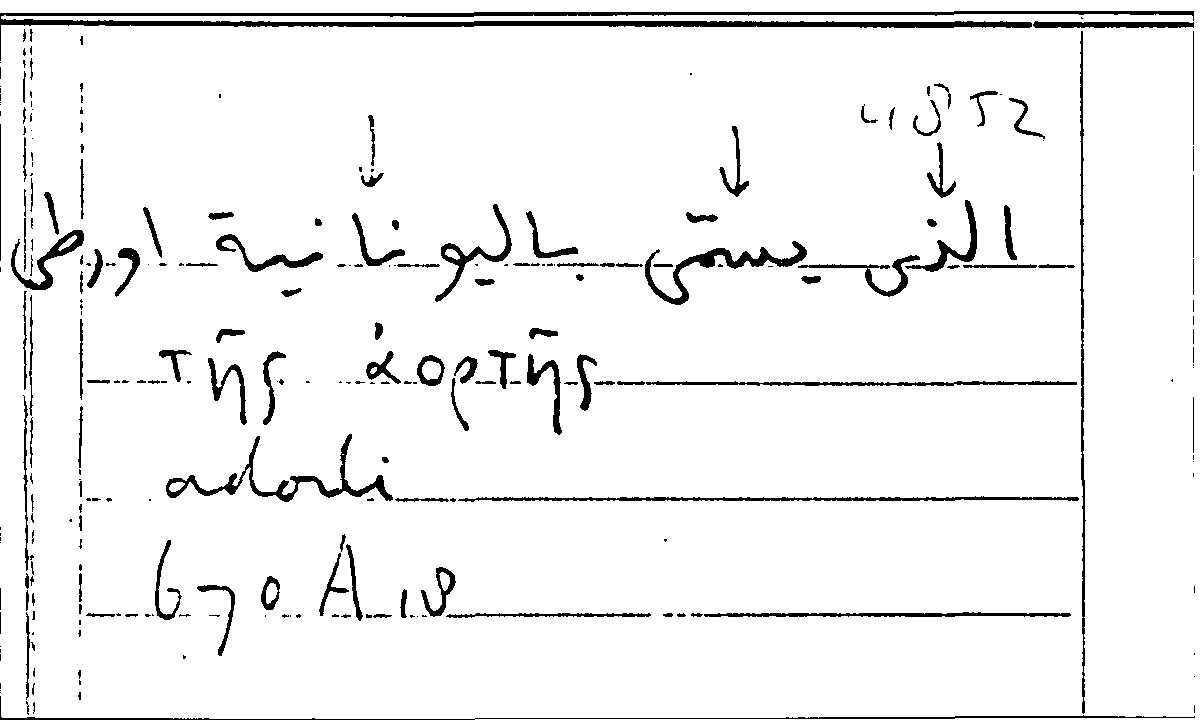 4852
الذى يسمّى باليونانية اورطى
τῆς ἀορτῆς
adorti
670 A 18